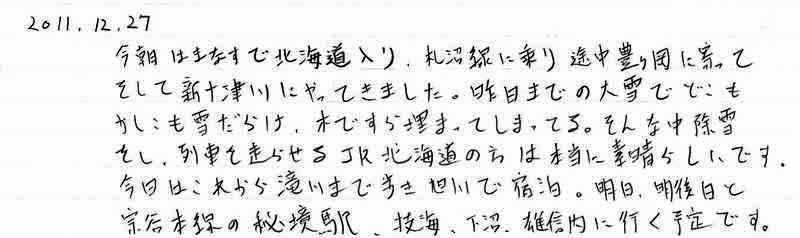 2011.12.27
今朝はまなすで北海道入り、札沼線に乗り途中豊ヶ岡に寄って
そして新十津川にやってきました。昨日までの大雪でどこも
かしこも雪だらけ、木ですら埋まってしまってる。そんな中除雪
をし、列車を走らせるJR北海道の方は本当に素晴らしいです。
今日はこれから滝川まで歩き旭川で宿泊。明日、明後日と
宗谷本線の秘境駅、抜海、下沼、雄信内に行く予定です。